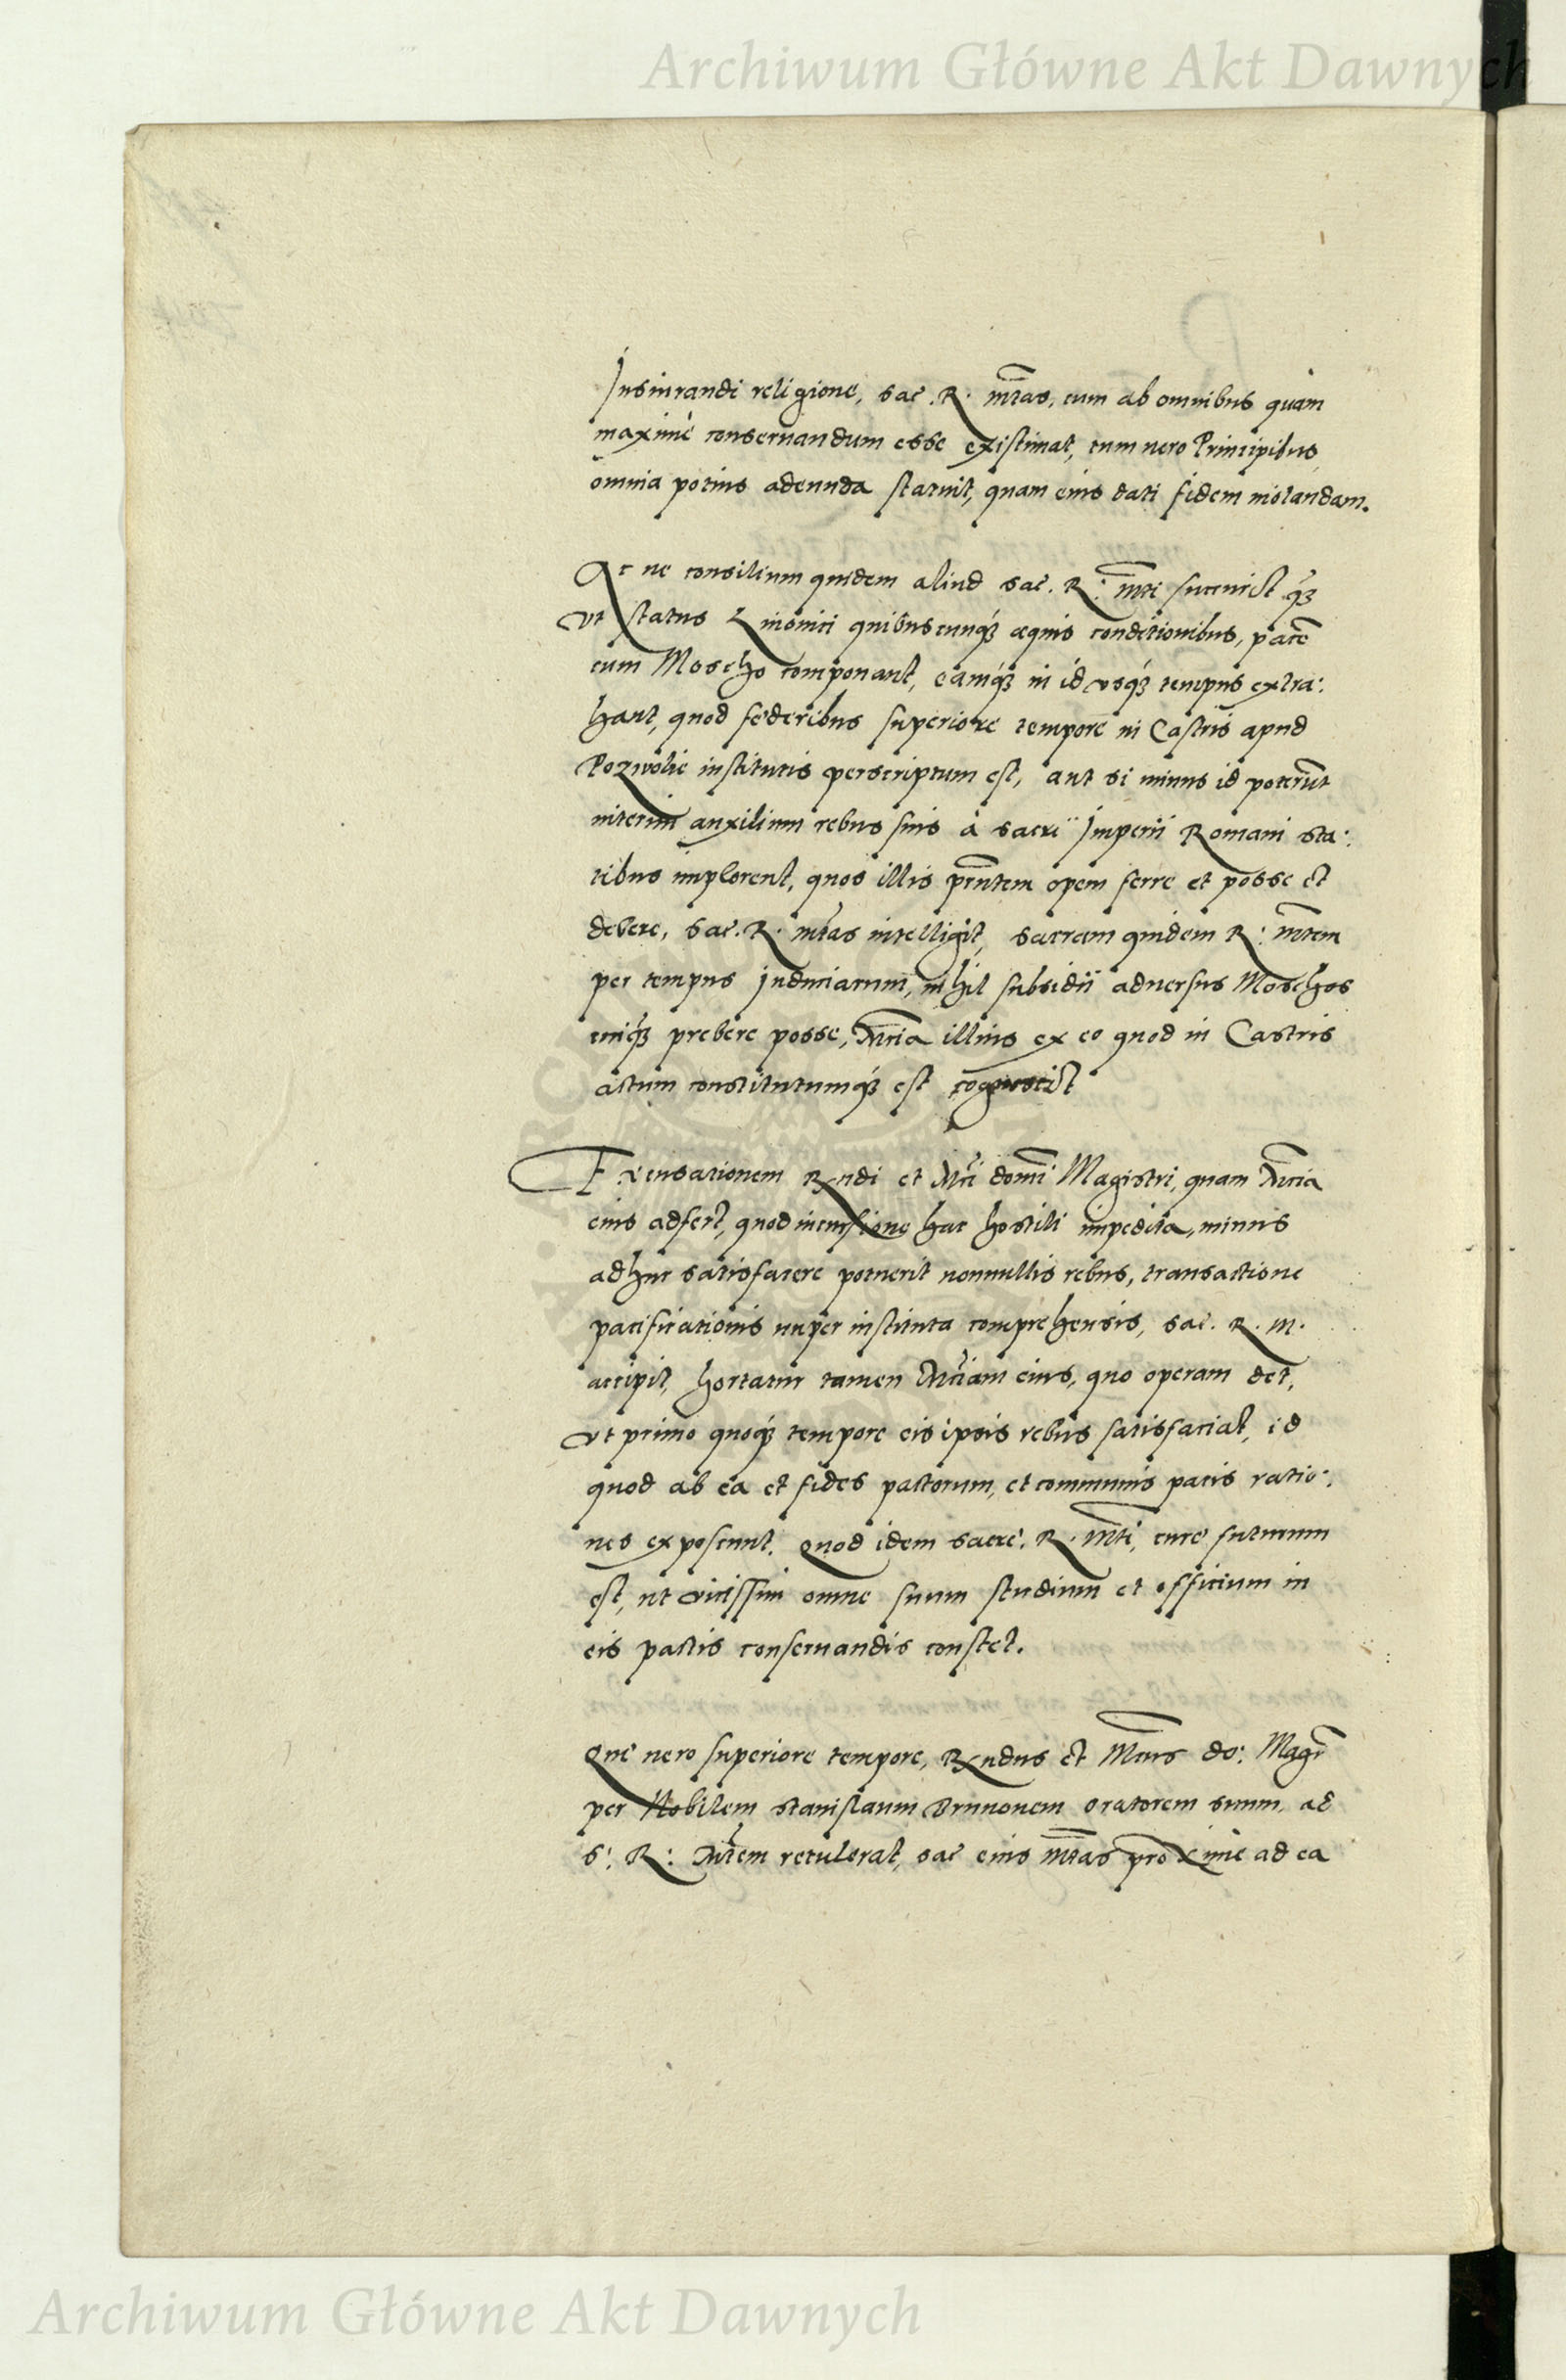 Archiwum Główne Akt Dawnych
Iusiurandi religione, sac. R. mtas, cum ab omnibus quam
maximè conseruandum esse existimat, tum uero Principibus,
omnia potius adeunda statuit, quam eius dati fidem uiolandam.
At ne consilium quidem aliud sac. R: mti succurrit q3
vt status Liuonici quibuscunq3 aequis conditionibus, pacē
cum Moscho componant, eamq3 in id vsq3 tempus extra:
hant, quod federibus superiore tempore in Castris apud
Pozwolie institutis perscriptum est, aut si minus id poterūt
interim auxilium rebus suis à sacri Imperii Romani sta:
tibus implorent, quos illis prntem opem ferre et posse et
debere, sac. R. mtas intelligit, sacram quidem R: mtem
per tempus induciarum, nihil subsidii aduersus Moschos
cuiq3 prebere posse, Mcia illius ex eo quod in Castris
actum constitutumq3 est cognoscit
Excusationem Rndi et Mci domi Magistri, quam Mcia
eius adfert, quod incursione hac hostili impedita, minus
adhuc satisfacere potuerit nonnullis rebus, transactione
pacificationis nuper instituta comprehensis, sac. R. M.
accipit, hortatur tamen Mciam eius, quo operam det,
vt primo quoq3 tempore eis ipsis rebus satisfaciat, id
quod ab ea et fides pactorum, et communis pacis ratio:
nes exposcunt. Quod idem sacre. R. Mti, cure futurum
est, ut vicissim omne suum studium et officium in
eis pactis conseruandis constet.
Que uero superiore tempore, Rndus et Mcus do: Magr
per Nobilem Stanislaum Brunonem oratorem suum, ad
S: R: Mtem retulerat, sac eius mtas proximè ad ea
Archiwum Główne Akt Dawnych